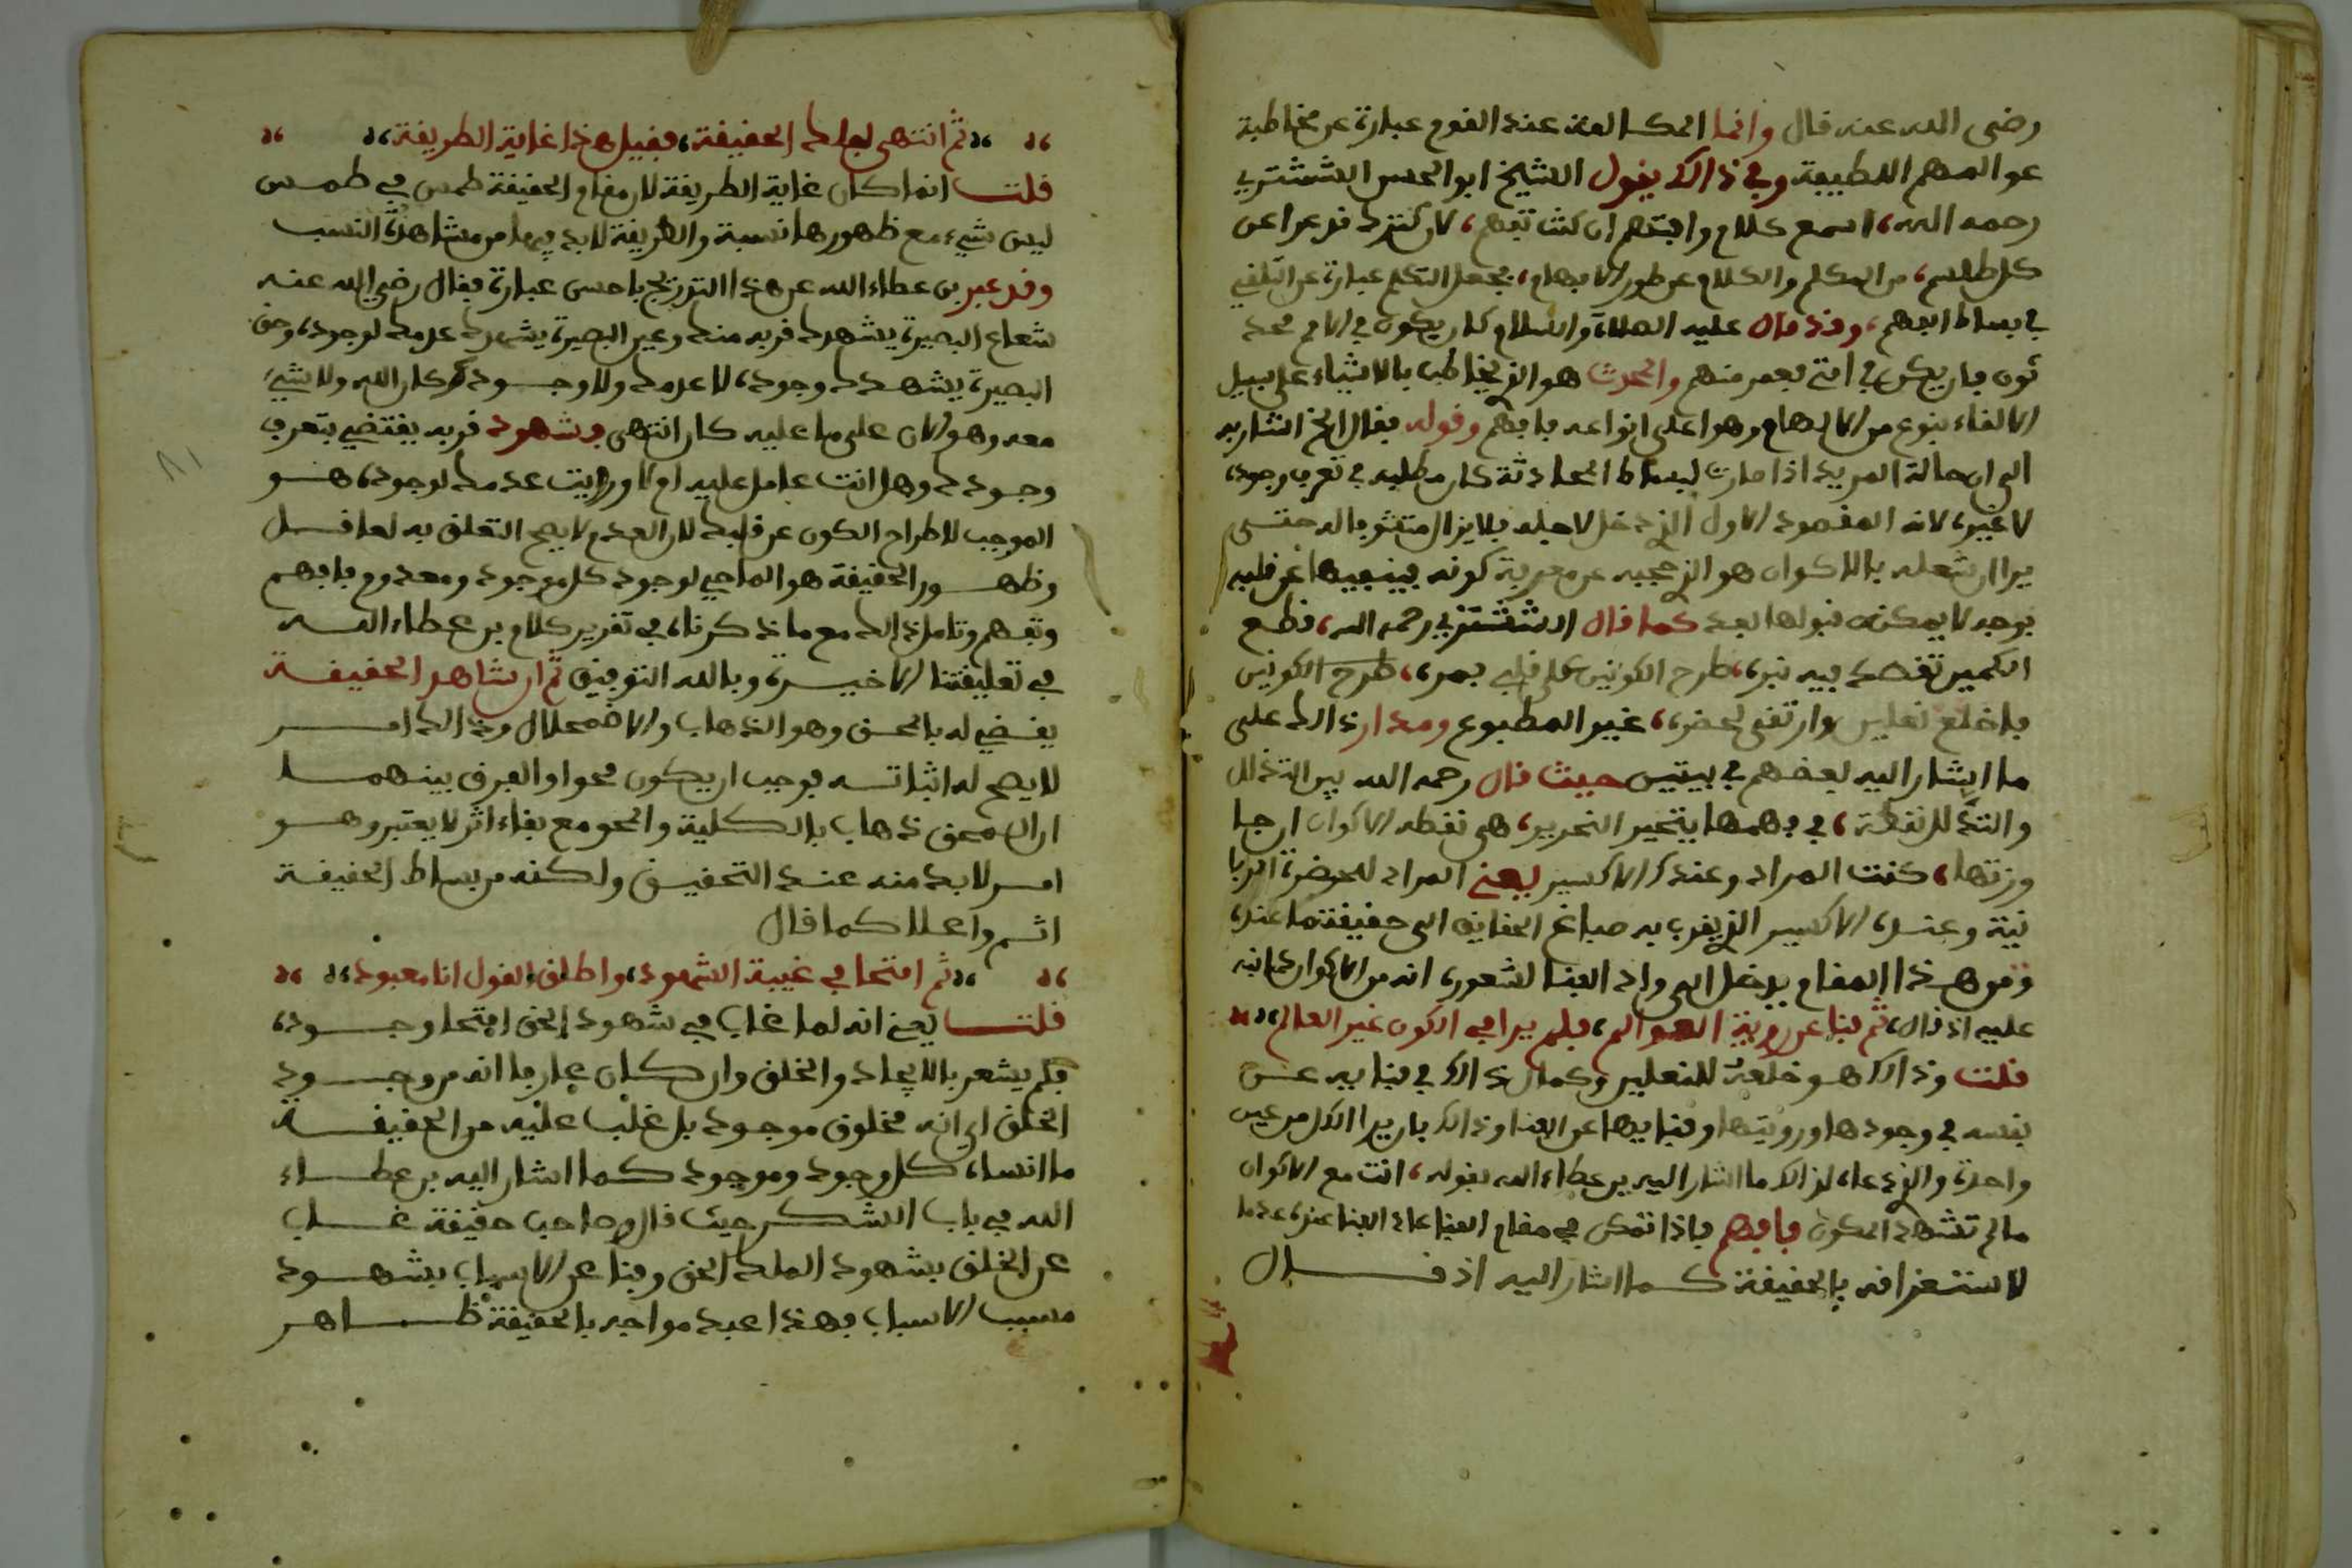 رضى الله عنه قال وانما المكالمة عند القوم عبارة عن مخاطبة
عوالمهم اللطيفة وفي ذالك يقول الشيخ ابوالحسن الششتري
رحمه الله، اسمع كلام وافتهم ان كنت تفهم، لان كنزك قد عرا عن
كل طلسم، من المكلم والكلام عن طور الابهام، فجعل التكلم عبارة عن التلقي
في بساط الفهم، وقد قال عليه الصلاة والسلام كان يكون في الامم محد
ثون فان يكن في امتي فعمر منهم والمحدث هو الذي يخاطب بالاشياء على سبيل
الالقاء بنوع من الالهام وهو اعلى انواعه فافهم وقوله فقال الخ اشار به
الى ان حالة المريد اذا صارت لبساط المحادثة كان مطلبه في تعرف وجوده
لا غير، لانه المقصود الاول الذي دخل لاجله فلا يزال متشوفا له حتى
يرا ان شغله بالاكوان هو الذي حجبه عن معرفة كونه فينفيها عن قلبه
بوجه لا يمكن قبولها بعد كما قال الششتري رحمه الله، فطع
الكمين تقصد فيه تبر، طرح الكونين على قلبي يمر، طرح الكونين
فاخلع نعلين وارتقى لحضر، غير المطبوع ومدار ذالك على
ما اشار اليه بعضهم في بيتين حيث قال رحمه الله بين التذلل
والتدلل نقطة، في فهمها يتحير النحرير، هي نقطة الاكوان ان جا
وزتها، كنت المراد وعندك الاكسير يعني المراد للحضرة الربا
نية وعنده الاكسير الذي يقرب به صباغ الحقايق الى حقيقة ما عنده
ومن هذا المقام يدخل الى واد الفنا لشعوره انه من الاكوان كما نبه
عليه اذ قال، ثم فنا عن روية العوالم، فلم يرا في الكون غير العالم،
قلت وذالك هو خلعة للنعلين وكمال ذالك في فنايه عن
نفسه في وجودها ورويتها وفنايها عن الفنا وذالك بان يرا الكل من عين
واحدة والذي دعاه لذالك ما اشار اليه بن عطاء الله بقوله، انت مع الاكوان
مالم تشهد المكون فافهم فاذا تمكن في مقام الفنا عاد الفنا عنده عدما
لاستغراقه بالحقيقة كما اشار اليه اذ قال
ثم انتهى لفلك الحقيقة، فقيل هذا غاية الطريقة،
قلت انما كان غاية الطريقة لان مقام الحقيقة طمس في طمس
ليس شيء مع ظهورها نسبة والطريقة لا بد فيها من مشاهدة النسب
وقد عبر بن عطاء الله عن هذا التدريج باحسن عبارة فقال رضي الله عنه
شعاع البصيرة يشهدك قربه منك وعين البصيرة يشهدك عدمك لوجوده، وحق
البصيرة يشهدك وجوده، لا عدمك ولا وجودك كان الله ولا شيء
معه وهو الان على ما عليه كان انتهى فشهود قربه يقتضي بتعرف
وجودك وهل انت عامل عليه ام لا ورايت عدمك لوجوده، هو
الموجب لاطراح الكون عن قلبك لان العدم لا يصح التعلق به لعاقل
وظهور الحقيقة هو الماحي لوجود كل موجود ومعدوم فافهم
وتفهم وتامل ذالك مع ما ذكرناه في تقرير كلام بن عطاء الله
في تعليقتنا الاخيرة، وبالله التوفيق ثم ان شاهد الحقيقة
يقضي له بالمحق وهو الذهاب والاضمحلال وذالك امر
لا يصح له اثباته بوجب ان يكون محوا والفرق بينهما
ان المحق ذهاب بالكلية والمحو مع بقاء اثر لا يعتبر وهو
امر لا بد منه عند التحقيق ولكنه من بساط الحقيقة
اتم واعلا كما قال
ثم امتحا في غيبة الشهود، واطلق القول انا معبود،
قلت يعني انه لما غاب في شهود الحق امتحا وجوده،
فلم يشعر بالايجاد والخلق وان كان عارفا انه من وجود
الخلق اي انه مخلوق موجود بل غلب عليه من الحقيقة
ما انساه كل وجود وموجود كما اشار اليه بن عطاء
الله في باب الشكر حيث قال وصاحب حقيقة غاب
عن الخلق بشهود الملك الحق وفنا عن الاسباب بشهود
مسبب الاسباب فهذا عبد مواجه بالحقيقة ظاهر